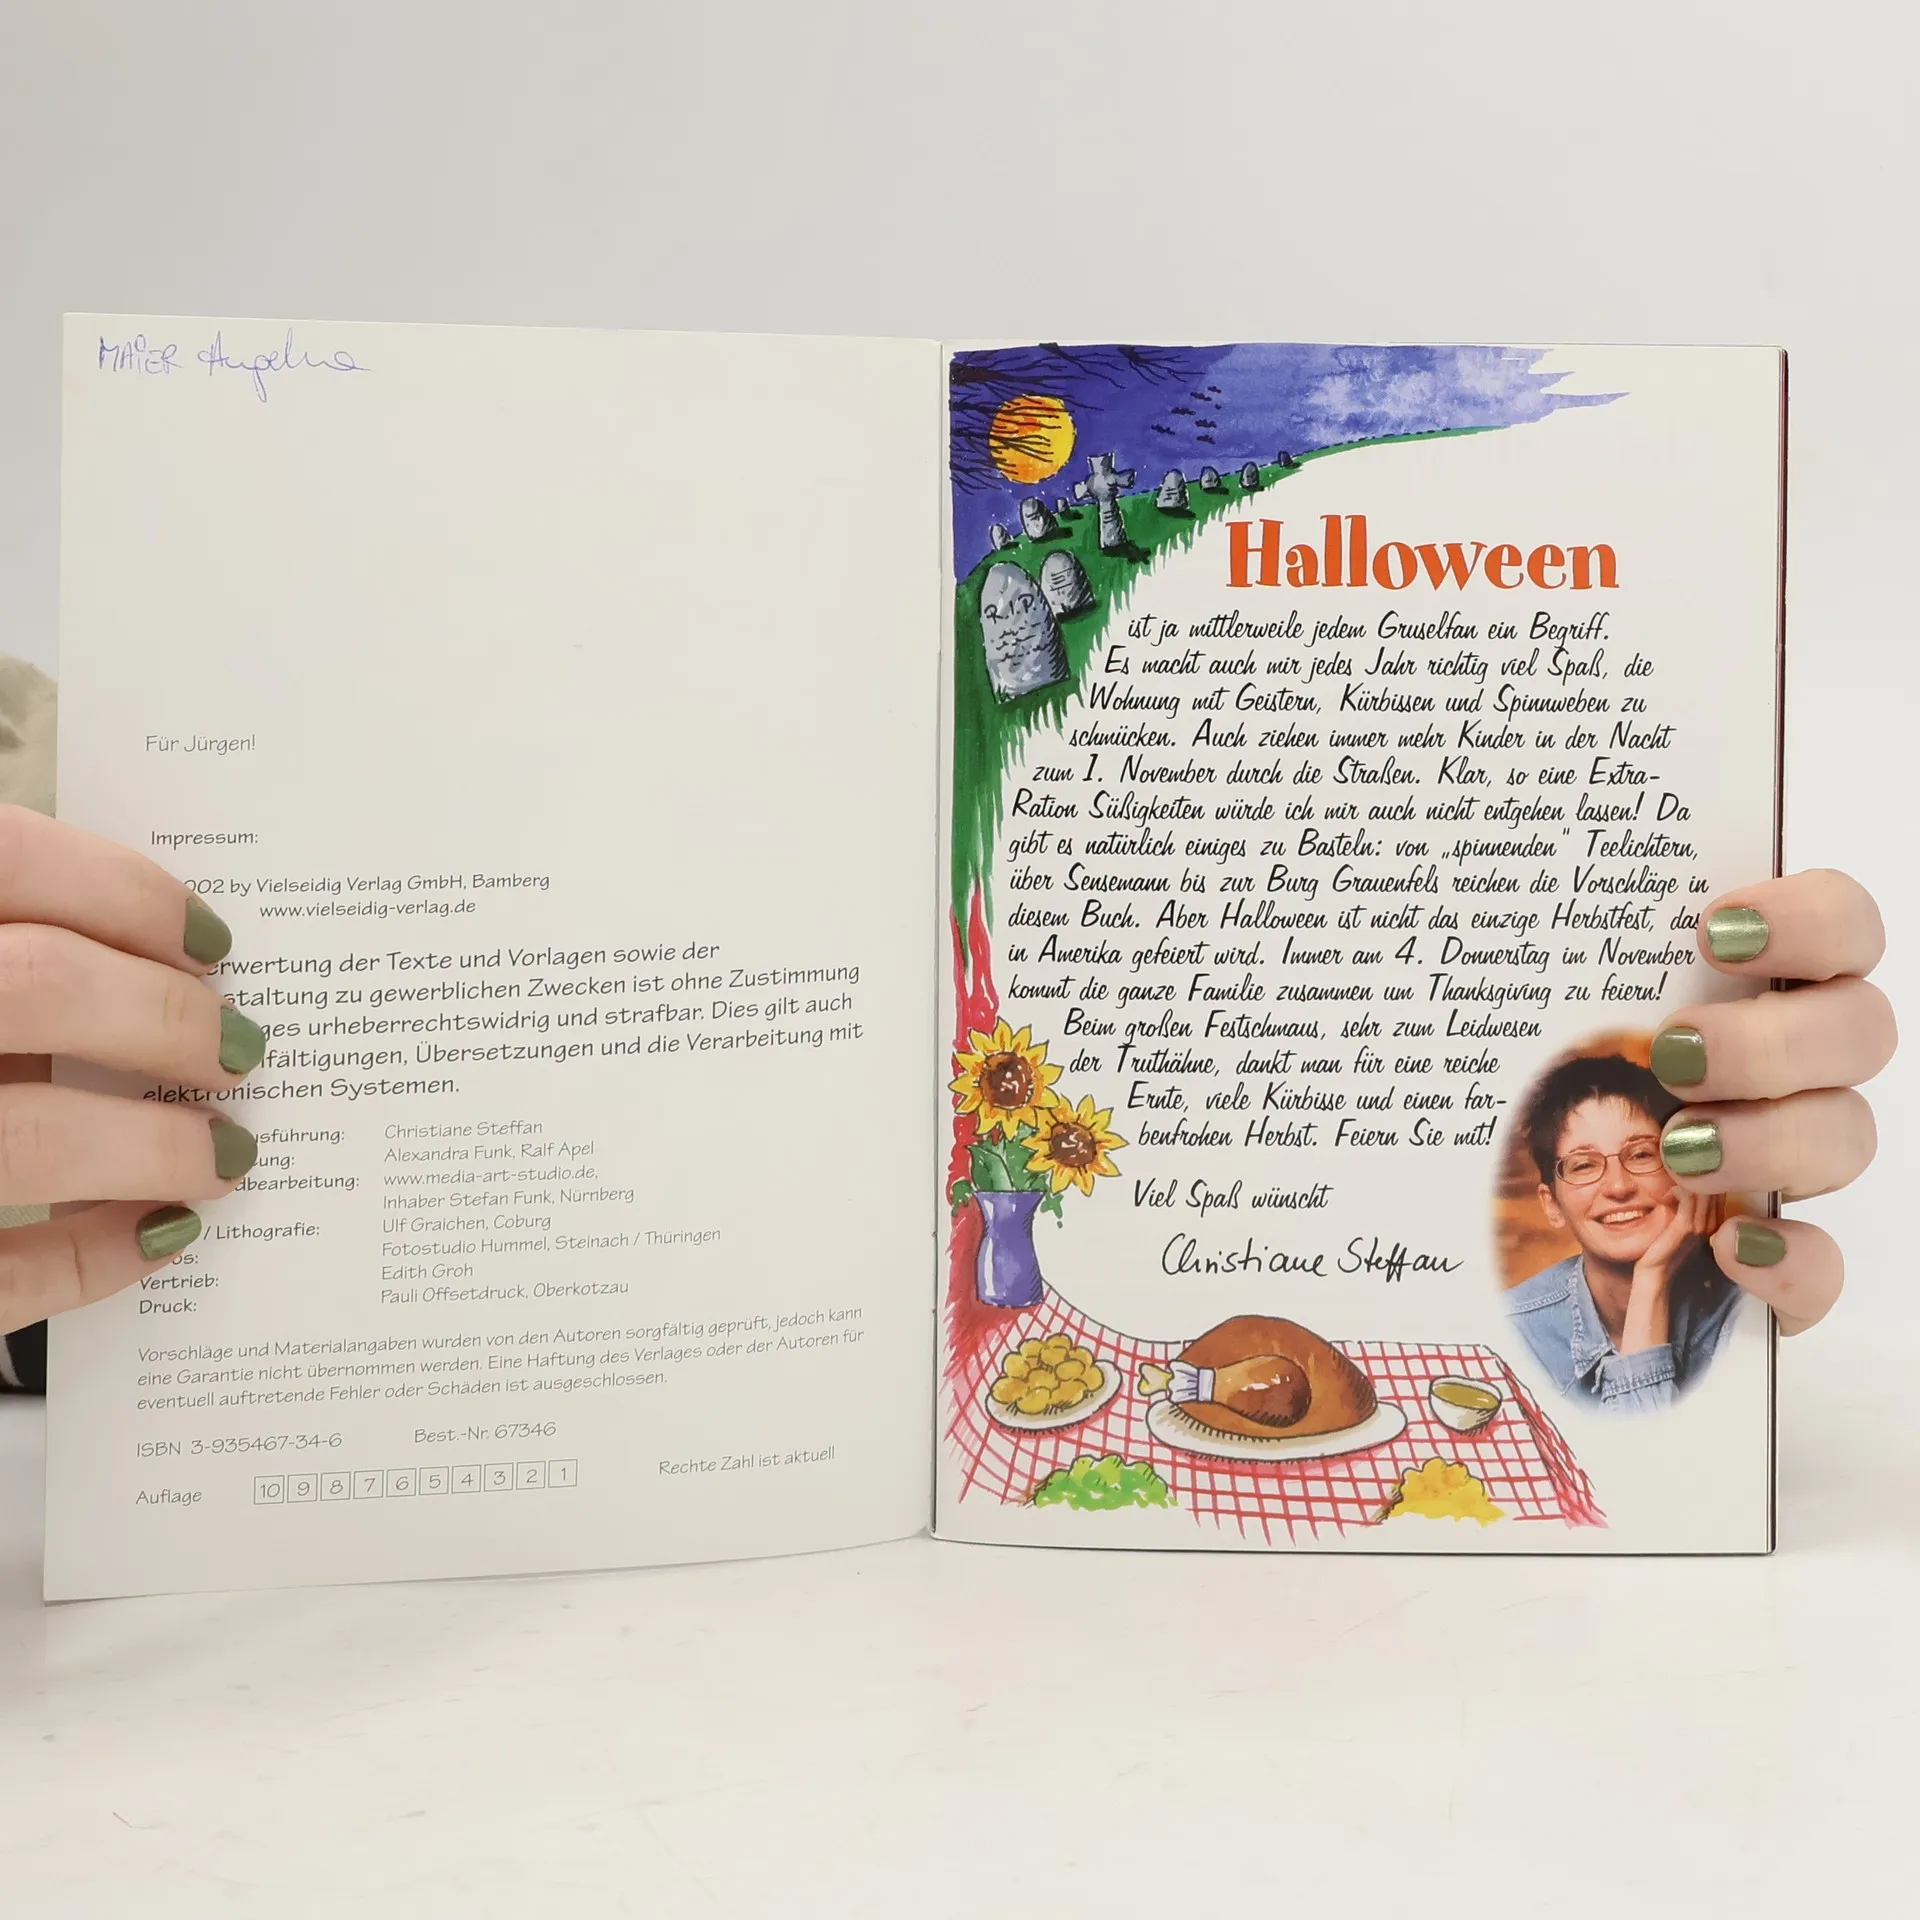 MAIER Angelina
Für Jürgen!
Impressum:
002 by Vielseidig Verlag GmbH, Bamberg
www.vielseidig-verlag.de
erwertung der Texte und Vorlagen sowie der
staltung zu gewerblichen Zwecken ist ohne Zustimmung
ges urheberrechtswidrig und strafbar. Dies gilt auch
lfältigungen, Übersetzungen und die Verarbeitung mit
elektronischen Systemen.
usführung: Christiane Steffan
ung: Alexandra Funk, Ralf Apel
dbearbeitung: www.media-art-studio.de,
Inhaber Stefan Funk, Nürnberg
/ Lithografie: Ulf Graichen, Coburg
os: Fotostudio Hummel, Steinach / Thüringen
Vertrieb: Edith Groh
Druck: Pauli Offsetdruck, Oberkotzau
Vorschläge und Materialangaben wurden von den Autoren sorgfältig geprüft, jedoch kann
eine Garantie nicht übernommen werden. Eine Haftung des Verlages oder der Autoren für
eventuell auftretende Fehler oder Schäden ist ausgeschlossen.
ISBN 3-935467-34-6 Best.-Nr. 67346
Auflage 10 9 8 7 6 5 4 3 2 1 Rechte Zahl ist aktuell
R.I.P.
Halloween
ist ja mittlerweile jedem Gruselfan ein Begriff.
Es macht auch mir jedes Jahr richtig viel Spaß, die
Wohnung mit Geistern, Kürbissen und Spinnweben zu
schmücken. Auch ziehen immer mehr Kinder in der Nacht
zum 1. November durch die Straßen. Klar, so eine Extra-
Ration Süßigkeiten würde ich mir auch nicht entgehen lassen! Da
gibt es natürlich einiges zu Basteln: von „spinnenden" Teelichtern,
über Sensemann bis zur Burg Grauenfels reichen die Vorschläge in
diesem Buch. Aber Halloween ist nicht das einzige Herbstfest, das
in Amerika gefeiert wird. Immer am 4. Donnerstag im November
kommt die ganze Familie zusammen um Thanksgiving zu feiern!
Beim großen Festschmaus, sehr zum Leidwesen
der Truthähne, dankt man für eine reiche
Ernte, viele Kürbisse und einen far-
benfrohen Herbst. Feiern Sie mit!
Viel Spaß wünscht
Christiane Steffan